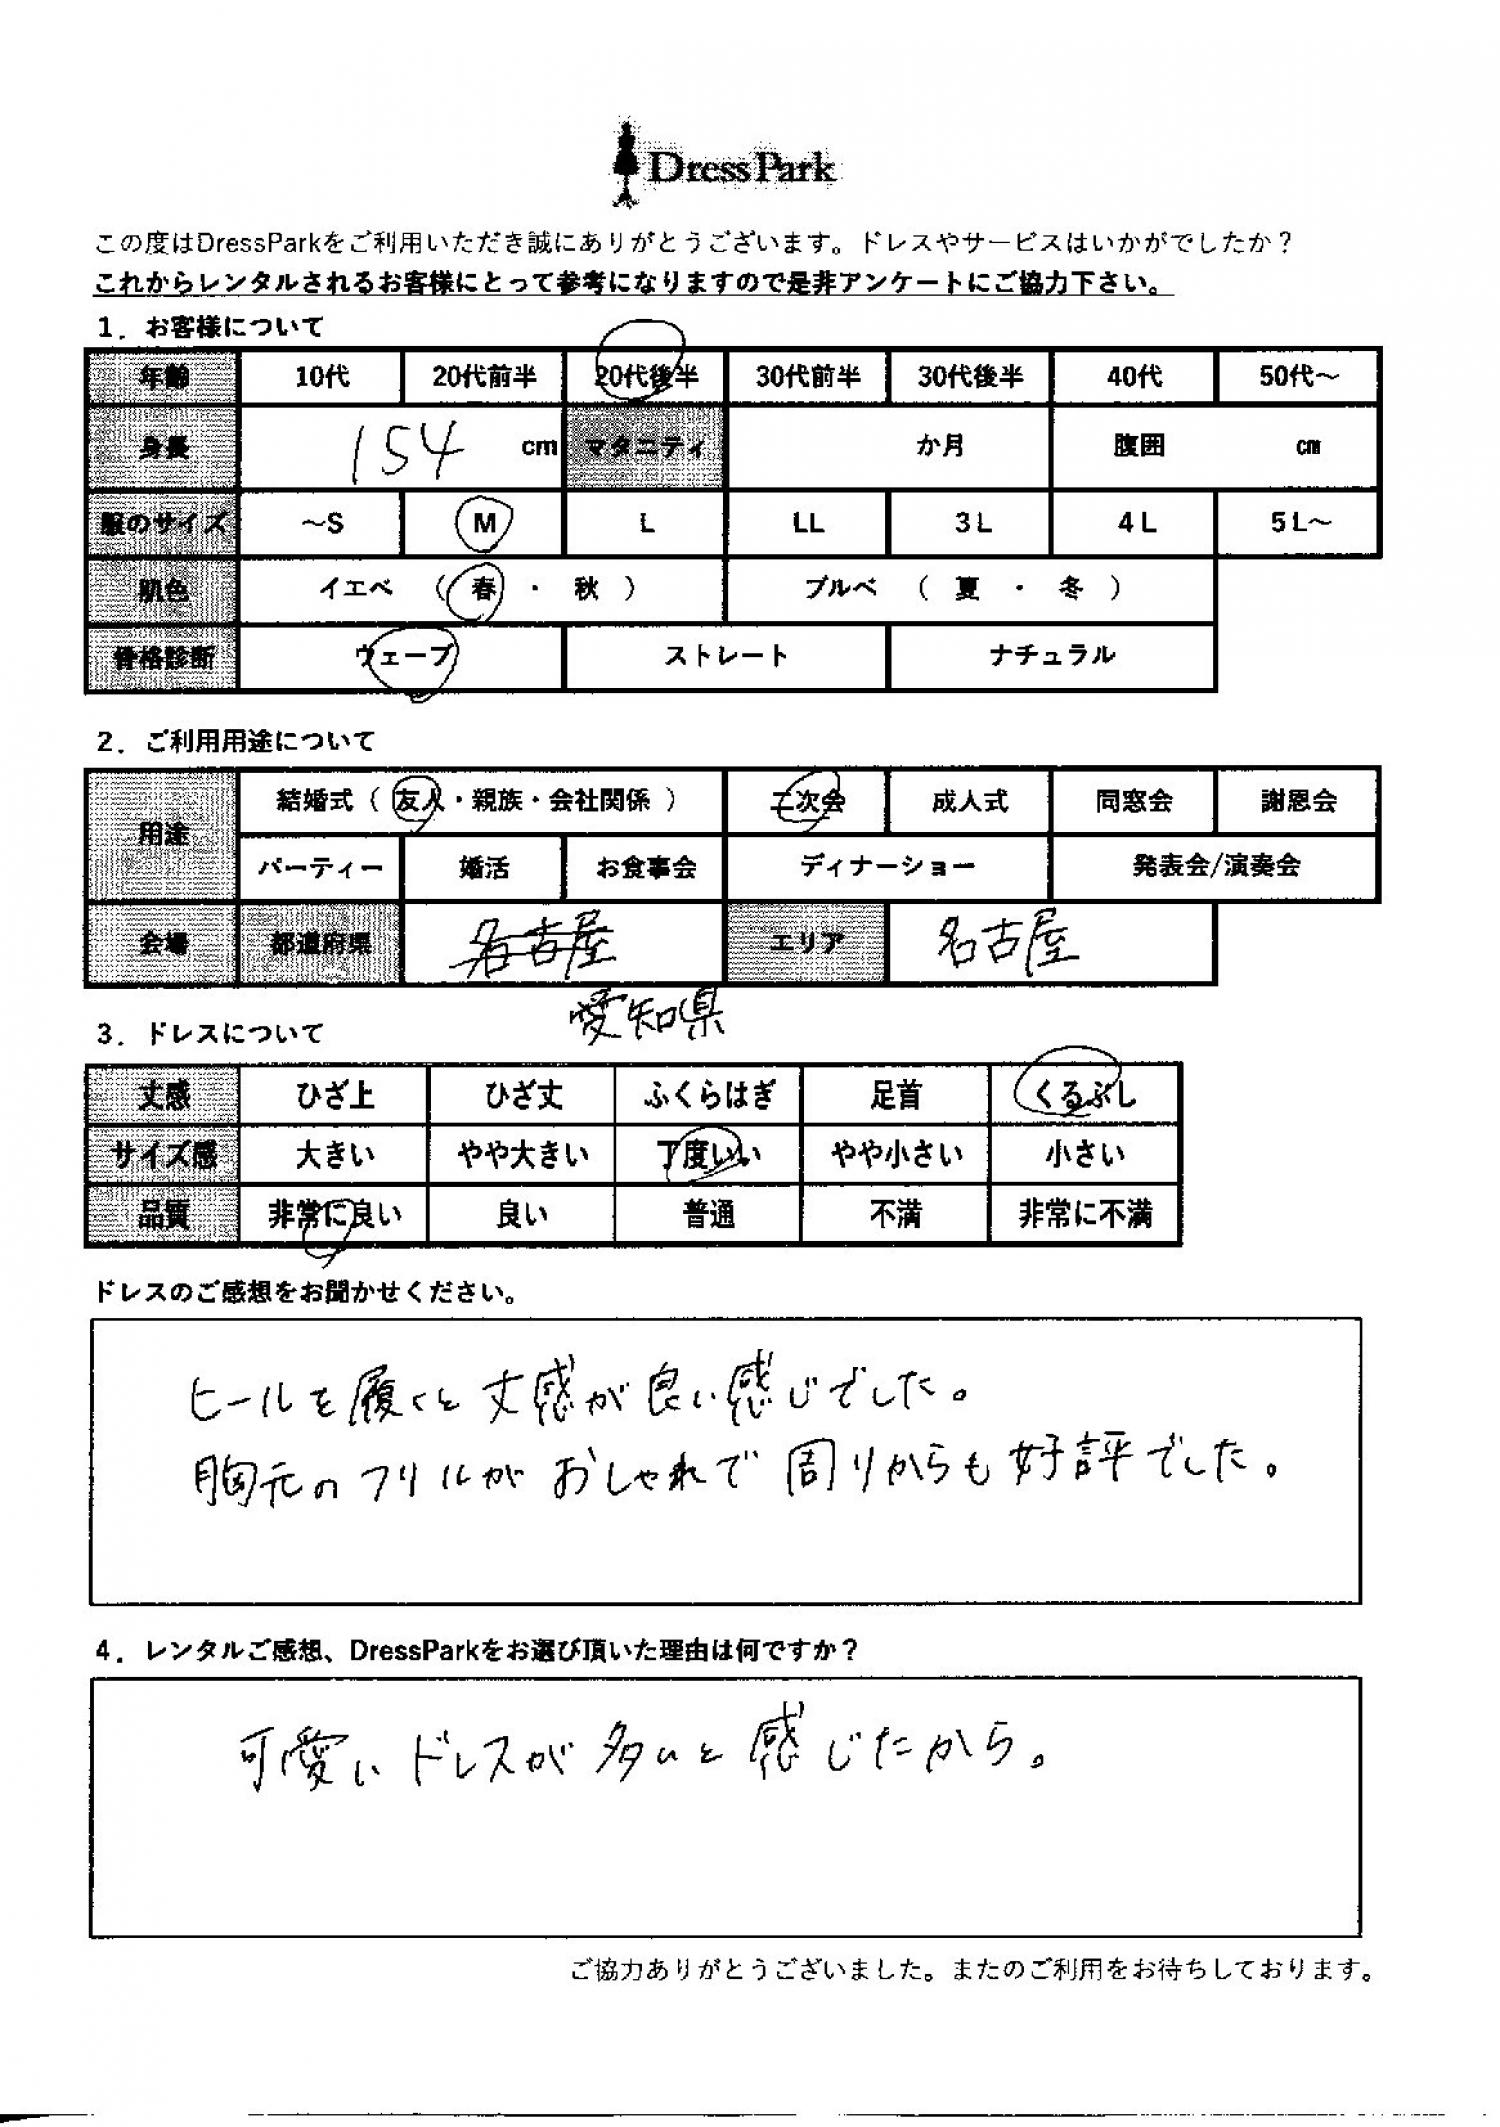 DressPark
この度はDressParkをご利用いただき誠にありがとうございます。ドレスやサービスはいかがでしたか？
これからレンタルされるお客様にとって参考になりますので是非アンケートにご協力下さい。
1．お客様について
年齢 10代 20代前半 20代後半 30代前半 30代後半 40代 50代～
身長 154 cm マタニティ か月 腹囲 cm
服のサイズ ～S M L LL 3L 4L 5L～
肌色 イエベ （ 春 ・ 秋 ） ブルベ （ 夏 ・ 冬 ）
骨格診断 ウェーブ ストレート ナチュラル
2．ご利用用途について
用途 結婚式（ 友人・親族・会社関係 ） 二次会 成人式 同窓会 謝恩会
パーティー 婚活 お食事会 ディナーショー 発表会/演奏会
会場 都道府県 名古屋 エリア 名古屋
愛知県
3．ドレスについて
丈感 ひざ上 ひざ丈 ふくらはぎ 足首 くるぶし
サイズ感 大きい やや大きい 丁度いい やや小さい 小さい
品質 非常に良い 良い 普通 不満 非常に不満
ドレスのご感想をお聞かせください。
ヒールを履くと丈感が良い感じでした。
胸元のフリルがおしゃれで周りからも好評でした。
4．レンタルご感想、DressParkをお選び頂いた理由は何ですか？
可愛いドレスが多いと感じたから。
ご協力ありがとうございました。またのご利用をお待ちしております。